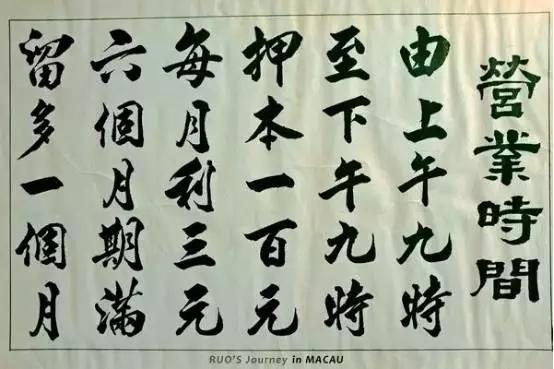 營業時間
由上午九時
至下午九時
押本一百元
每月利三元
六個月期滿
留多一個月
RUO'S Journey in MACAU